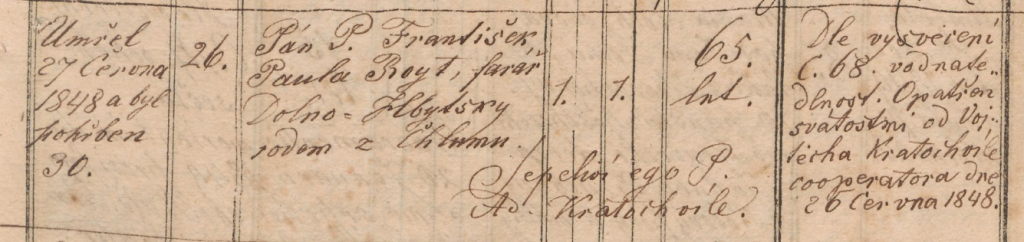 Umřel
27 Června
1848 a byl
pohřben
30.
26.
Pán P. František
Paula Royt, farář
Dolno-Zbytsky
rodem z Chlumu.
1. 1.
65.
let.
Sepelivi ego P.
Ad. Kratochvíle.
Dle vysvěcení
č. 68. vodnate-
dlnost. Opatřen
svátostmi od Voj-
těcha Kratochvíle
cooperatora dne
26 Června 1848.